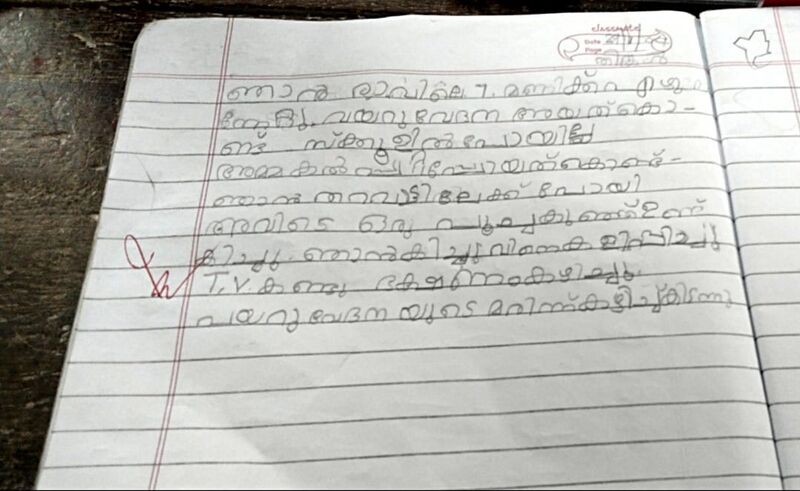 classmate
Date
Page
ഞാൻ രാവിലെ 7. മണിക്ക് എഴു
ന്നേറ്റു. വയറുവേദന ആയത്കൊ-
ണ്ട് സ്ക്കൂളിൽ പോയില്ല
അമ്മ പോയത്കൊണ്ട്-
ഞാൻ തറവാട്ടിലേക്ക് പോയി
അവിടെ ഒരു പൂച്ചകുഞ്ഞ് ഉണ്ട്
ഞാൻ കിച്ചുവിനെ കളിപ്പിച്ചു
T.V. കണ്ടു ഭക്ഷണം കഴിച്ചു.
വയറുവേദനയുടെ മരുന്ന് കഴിച്ച് കിടന്നു